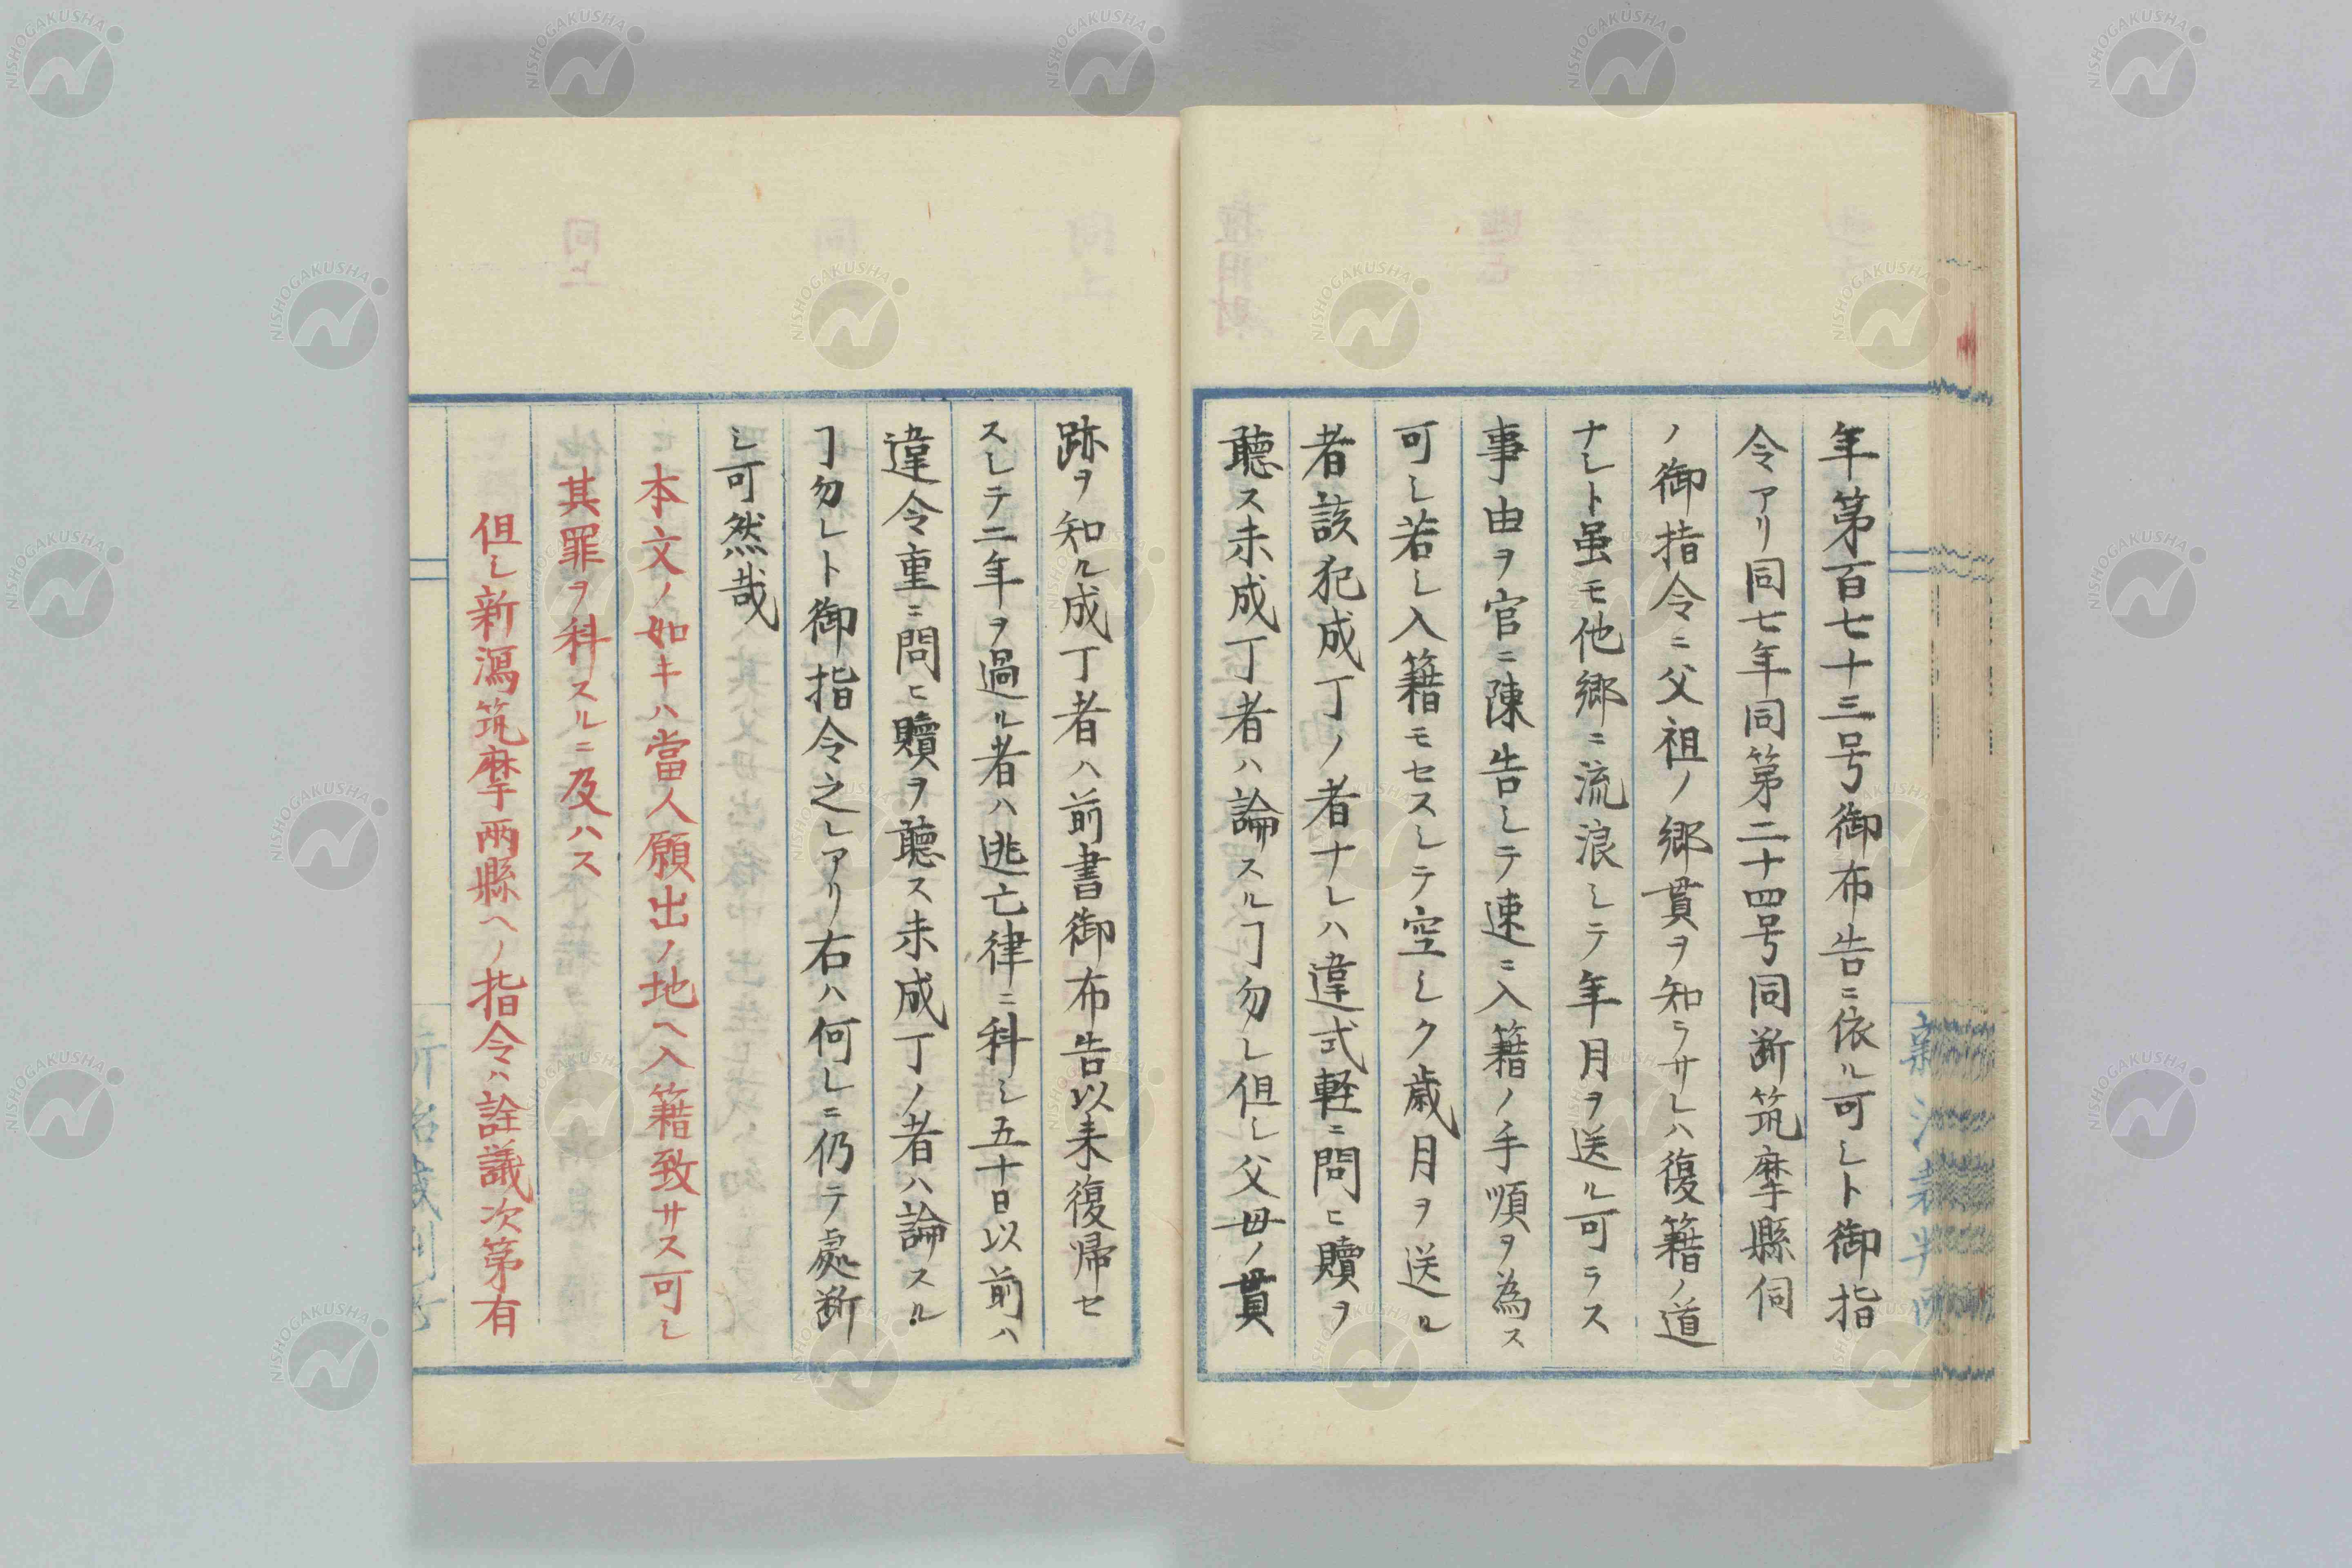 年第百七十三号御布告ニ依ル可シト御指
令アリ同七年同第二十四号同断筑摩縣伺
ノ御指令ニ父祖ノ郷貫ヲ知ラサレハ復籍ノ道
ナシト虽モ他郷ニ流浪シテ年月ヲ送ル可ラス
事由ヲ官ニ陳告シテ速ニ入籍ノ手順ヲ為ス
可シ若シ入籍モセスシテ空シク歳月ヲ送ル
者該犯成丁ノ者ナレハ違式軽ニ問ヒ贖ヲ
聴ス未成丁者ハ論スルヿ勿レ但シ父母ノ貫
跡ヲ知ル成丁者ハ前書御布告以来復帰セ
スシテ二年ヲ過ル者ハ逃亡律ニ科シ五十日以前ハ
違令重ニ問ヒ贖ヲ聴ス未成丁ノ者ハ論スル
ヿ勿レト御指令之レアリ右ハ何レニ仍テ處断
シ可然哉
本文ノ如キハ當人願出ノ地ヘ入籍致サス可シ
其罪ヲ科スルニ及ハス
但シ新潟筑摩両縣ヘノ指令ハ詮議次第有
NISHOGAKUSHA